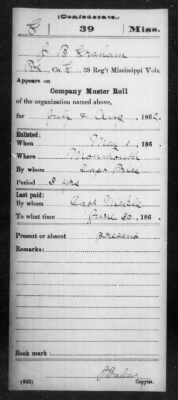 (Confederate.)
G 39 Miss.
J B Graham
Co. E, 39 Reg't Mississippi Vols.
Appears on
Company Muster Roll
of the organization named above,
for June & Aug, 1862.
Enlisted:
When May 1, 186 .
Where
By whom Capt
Period 3 yrs
Last paid:
By whom Capt
To what time June 30, 186 .
Present or absent present
Remarks:
Book mark:
(642) Copyist.